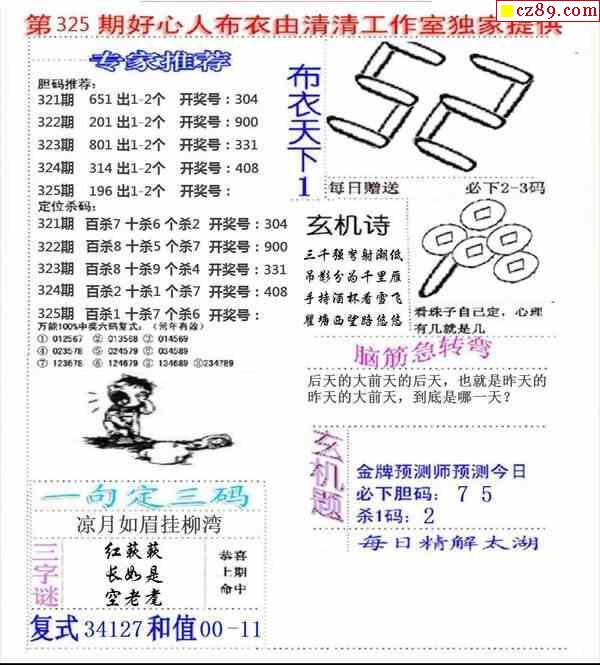 cz89.com
第325期好心人布衣由清清工作室独家提供
专家推荐
胆码推荐:
321期 651出1-2个 开奖号:304
322期 201出1-2个 开奖号:900
323期 801出1-2个 开奖号:331
324期 314出1-2个 开奖号:408
325期 196出1-2个 开奖号:
定位杀码:
321期 百杀7 十杀6 个杀2 开奖号:304
322期 百杀8 十杀5 个杀7 开奖号:900
323期 百杀8 十杀9 个杀4 开奖号:331
324期 百杀2 十杀1 个杀7 开奖号:408
325期 百杀1 十杀7 个杀6 开奖号:
万能100%中奖六码复式:(常年有效)
① 012567 ② 013568 ③ 014569
④ 023578 ⑤ 024579 ⑥ 034589
⑦ 123678 ⑧ 124679 ⑨ 134689 ⑩234789
布衣天下1
52
每日赠送 必下2-3码
玄机诗
三千强弩射潮低
吊影分为千里雁
手持酒杯看雪飞
瞿塘西望路悠悠
看珠子自己定,心理
有几就是几
脑筋急转弯
后天的大前天的后天,也就是昨天的
昨天的大前天,到底是哪一天?
玄机题
金牌预测师预测今日
必下胆码: 7 5
杀1码: 2
每日精解太湖
一句定三码
凉月如眉挂柳湾
三字谜
红蔌蔌
长如是
空老耄
恭喜
上期
命中
复式34127和值00-11